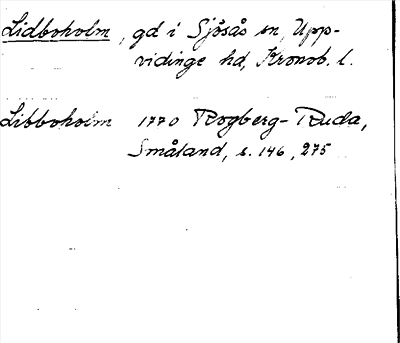 Lidboholm, gd i Sjösås sn, Upp-
vidinge hd, Kronob. l.
Libboholm 1770 Rogberg-Ruda,
Småland, s. 146, 275